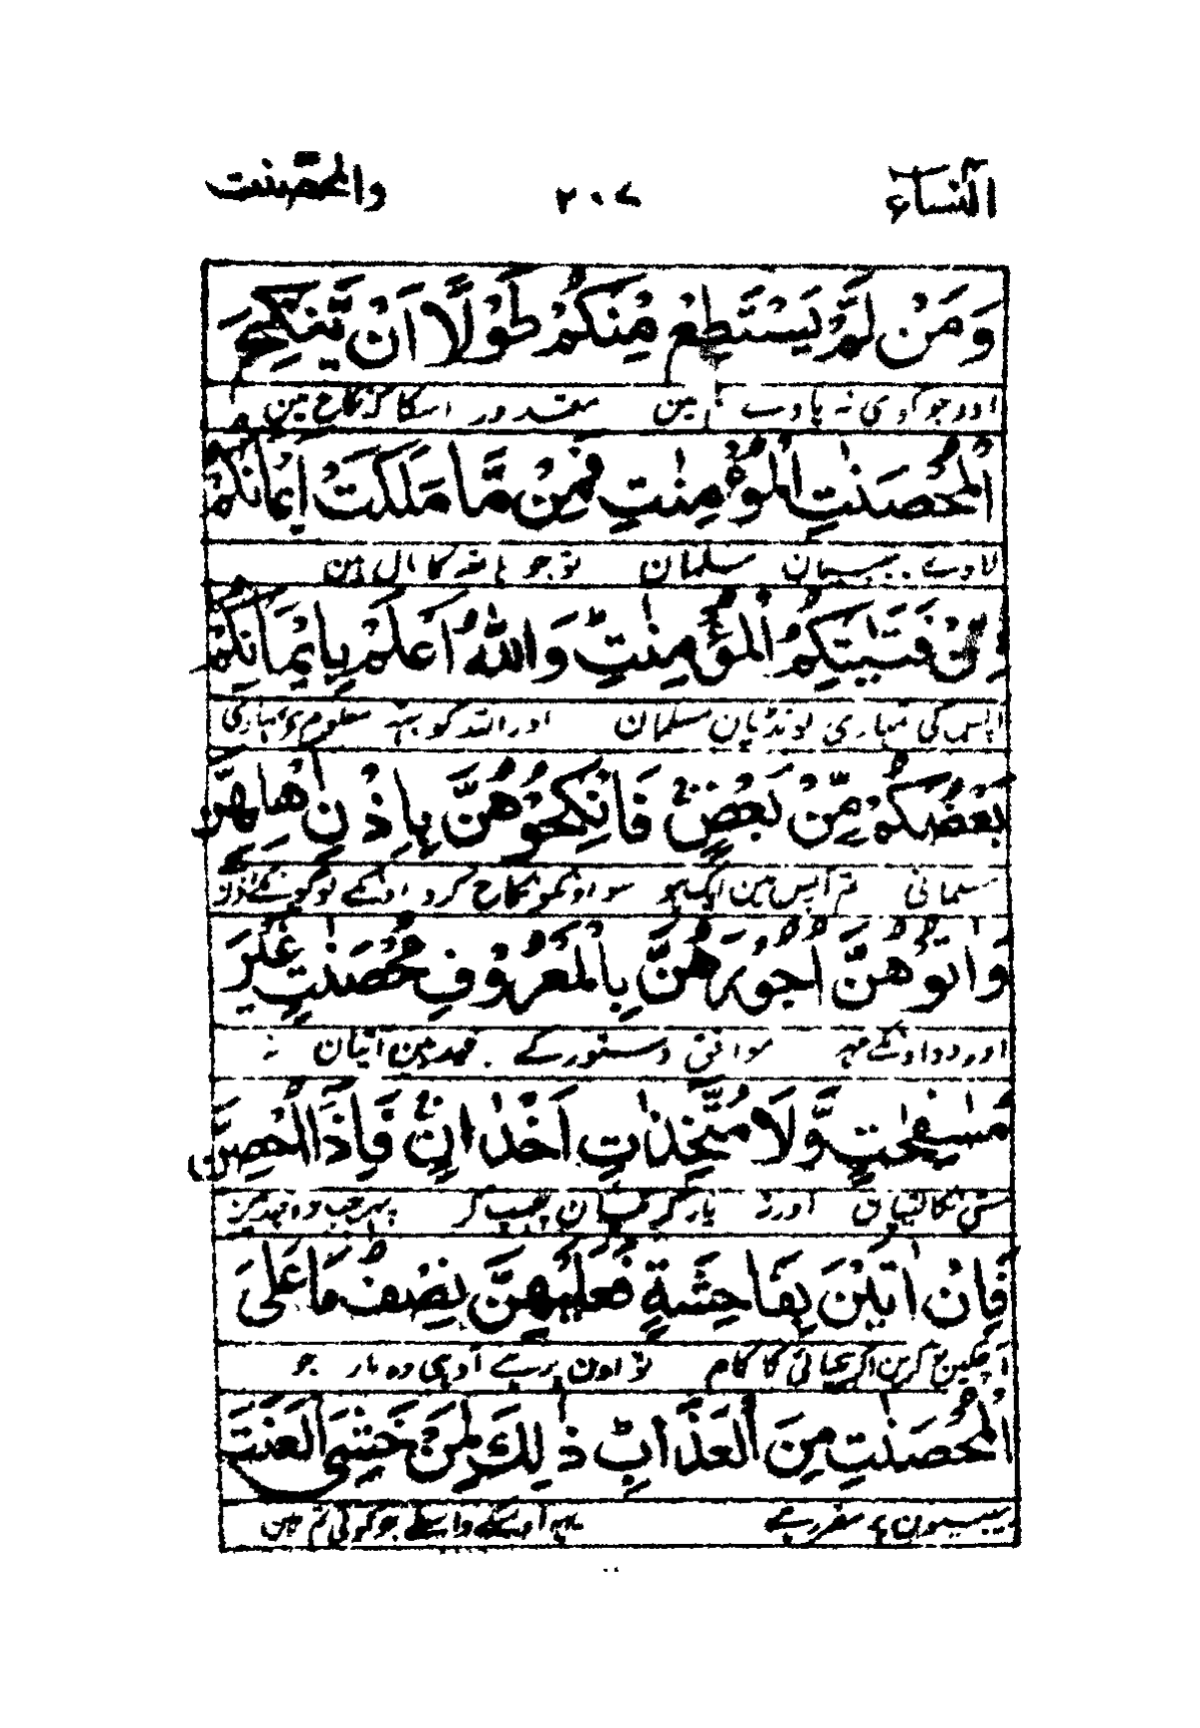 النساء ۲۰۷ والمحصنت
وَمَنْ لَّمْ يَسْتَطِعْ مِنْكُمْ طَوْلًا اَنْ يَّنْكِحَ
اور جو کوئی نہ پاوے تم مین مقدور اسکا کہ نکاح مین
الْمُحْصَنٰتِ الْمُؤْمِنٰتِ فَمِنْ مَّا مَلَكَتْ اَيْمَانُكُمْ
لاوے بیبیان مسلمان تو جو ہاتھ کا مال ہین
مِّنْ فَتَيٰتِكُمُ الْمُؤْمِنٰتِ وَاللّٰهُ اَعْلَمُ بِاِيْمَانِكُمْ
آپس کی تمہاری لونڈیان مسلمان اور اللہ کو بہتر معلوم ہی تمہاری
بَعْضُكُمْ مِّنْ بَعْضٍ فَانْكِحُوْهُنَّ بِاِذْنِ اَهْلِهِنَّ
مسلمانی تم آپس مین ایک ہو سو اونکو نکاح کرو اونکے لوگونکے اذن
وَاٰتُوْهُنَّ اُجُوْرَهُنَّ بِالْمَعْرُوْفِ مُحْصَنٰتٍ غَيْرَ
اور دو اونکے مہر موافق دستور کے قید مین آتیان نہ
مُسٰفِحٰتٍ وَّلَا مُتَّخِذٰتِ اَخْدَانٍ فَاِذَا اُحْصِنَّ
مستی نکالتیان اور نہ یار کرتیان چھپ کر پھر جب وہ قید مین
فَاِنْ اَتَيْنَ بِفَاحِشَةٍ فَعَلَيْهِنَّ نِصْفُ مَا عَلَى
آچکین تو کرین اگر بیحیائی کا کام تو اون پر ہے آدہی وہ مار جو
الْمُحْصَنٰتِ مِنَ الْعَذَابِ ذٰلِكَ لِمَنْ خَشِيَ الْعَنَتَ
بیبیون پر مقرر ہے یہہ اوسکے واسطے جو کوئی تم مین